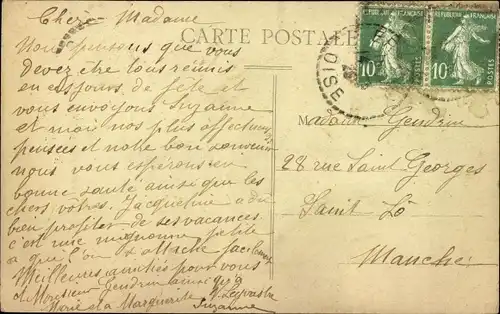 Chere Madame
Nous pensons que vous
devez être tous réunis
en ces jours de fête et
vous envoyons Suzanne
et moi nos plus affectueuses
pensées et notre bon souvenir
nous vous espérons en
bonne santé ainsi que les
chers vôtres. Jacqueline a du
bien profiter de ses vacances.
c'est une mignonne petite
a que l'on s'attache facilement
Meilleures amitiés pour vous
et Monsieur Gendrin ainsi qu'à
Marie et a Marguerite
Suzanne
CARTE POSTALE
REPUBLIQUE FRANÇAISE
10
POSTES
REPUBLIQUE FRANÇAISE
10
POSTES
OISE
Madame Gendrin
28 rue Saint Georges
Saint Lô
Manche